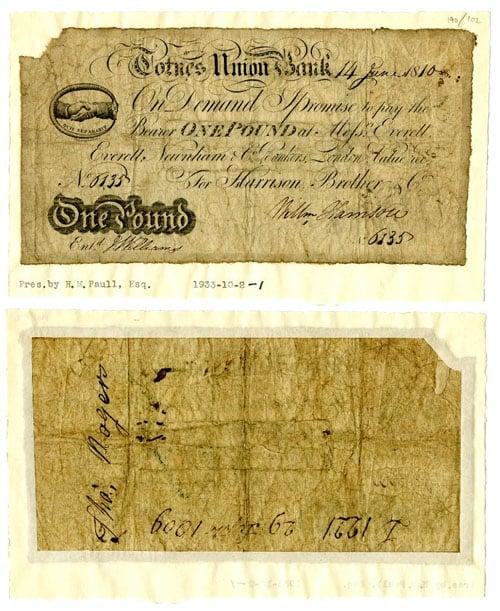 190/102
Totnes Union Bank 14 June 1810
On Demand I promise to pay the
Bearer ONE POUND at Messrs. Everett
Everett, Newnham & Co. Bankers, London Value rec
No. 6135 For Harrison, Brother & Co
DUM SEPARABIT
One Pound
6135
Entd. J Williams
Pres. by H. M. Paull, Esq. 1933-10-2-1
Rogers